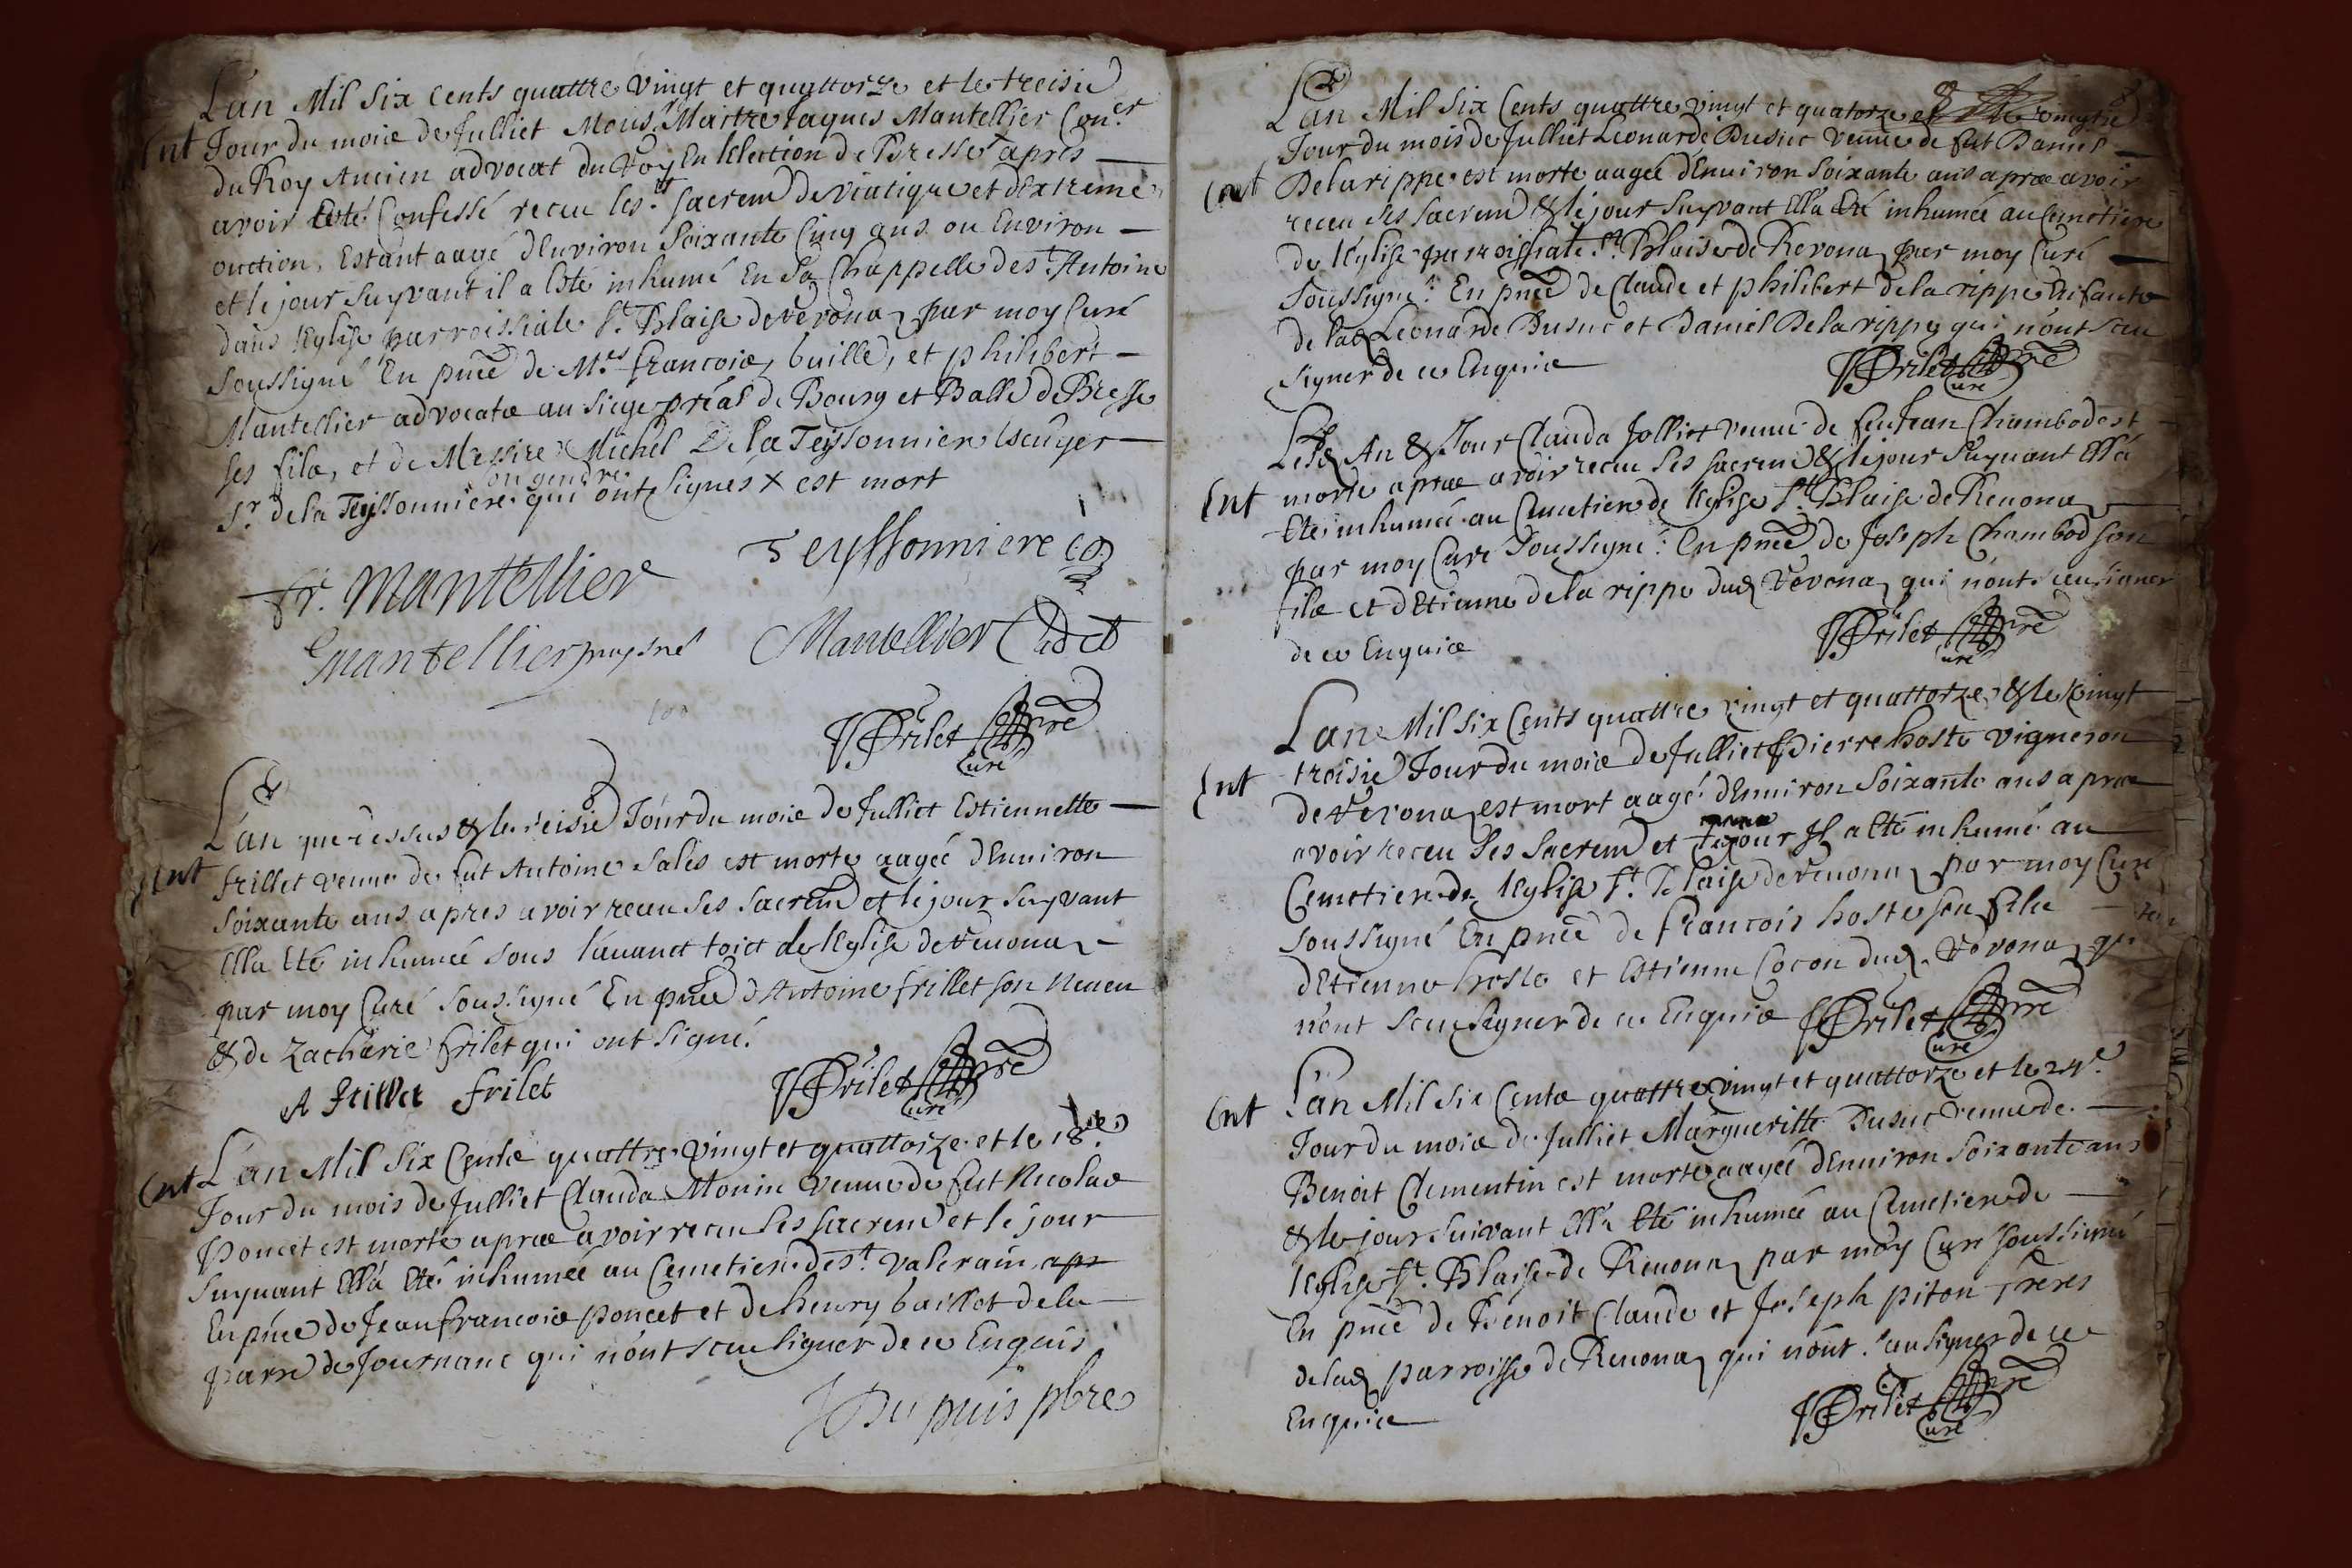 L'an Mil Six cents quattre vingt et quattorze et le treisie
Ent Jour du moie de Julliet Mons.r Maistre Jaques Mantellier Con.er
du Roy Ancien advocat du Roy En lElection de Bresse apres
avoir Esté Confessé receu les sts sacrem de viatique et dExtreme
onction, Estant aagé dEnviron Soixante Cinq ans ou Environ
et le jour suyvant il a Esté inhumé En Sa Chappelle de st Antoine
dans lEglise parroissiale St Blaise de Revona par moy Curé
Soussigné En pnce de M.es francoie, baille, et philibert
Mantellier advocate au siege pnal de Bourg et Balle de Bresse
ses file, et de Messire Michel De la Teyssonniere Escuyer
Sr. de la Teyssonniere son gendre qui ont signés X est mort
fr. Mantellier Teyssonniere
Mantellier puysné Mantellier Cadet
Frilet pre
Curé
L'an que dessus & le treisie Jour du moie de Julliet Estiennette
Ent frillet venue de fut Antoine Sales est morte aagée dEnuiron
soixante ans apres avoir receu ses sacrem et le jour suyvant
Ella Eté inhumée sous l'avanct toict de lEglise de Reuona
par moy Curé soussigné En pnce d'Antoine frillet son Neueu
& de Zacharie frilet qui ont signé.
A Frillet frilet Frilet pre
Curé
Ent L'an Mil Six Cente quattre vingt et quattorze et le 18.e
Jour du mois de Julliet Clauda Monin venue de fut Nicolae
Poncet est morte aprae avoir receu ses sacrem et le jour
suyuant Ella Eté inhumée au Cemetiere de st. valerain apr
En pnce de Jean francoie poncet et de henry baillot de la
parre de Journanc qui n'ont sceu signer de ce Enquis
Dupuis pbre
L'an Mil Six Cents quattre vingt et quatorze et le vingtie
Jour du mois de Julliet Leonarde Dusuc venue de fut Daniel
Ent Delarippe est morte aagée dEnuiron soixante ans aprae avoir
receu ses sacrem & le jour suyvant Ella Eté inhumée au Cemetiere
de lEglise parroissiale St. Blaise de Revona par moy Curé
Soussigné: En pnce de Claude et philibert de la rippe Enfants
de lad Leonarde Dusuc et Daniel Dela rippe qui n'ont sceu
signer de ce Enquice Frilet pre
Curé
Led An & Jour Clauda Jolliet venue de feu Jean Chambod est
Ent morte aprae avoir receu ses sacrem & le jour suyuant Ella
Eté inhumée au Cemetiere de lEglise St Blaise de Reuona
par moy Curé Soussigné: En pnce de Joseph Chambod son
file et dEtienne de la rippe dud Revona qui n'ont sceu signer
de ce Enquice Frilet pre
Curé
L'an Mil Six Cents quattre vingt et quattorze & le vingt
Ent troisie Jour du moie de Julliet Pierre hoste vigneron
de Revona est mort aagé dEnuiron Soixante ans aprae
avoir receu ses sacrem et Il a Eté inhumé au
Cemetiere de lEglise St. Blaise de Reuona par moy Curé
soussigné En pnce de francois hoste son file
dEtienne hoste et Estienne Cocon dud. Revona qui
n'ont sceu signer de ce Enquice Frilet pre
Curé
Ent L'an Mil Six Cente quattre vingt et quattorze et le 24.e
Jour du moie de Julliet Margueritte Dusuc venue de
Benoit Clementin est morte aagée dEnuiron Soixante ans
& le jour suivant Ella Eté inhumée au Cemetiere de
lEglise St. Blaise de Reuona par moy Curé soussigné
En pnce de Benoit Claude et Joseph piton freres
de lad parroisse de Reuona qui n'ont sceu signer de ce
Enquice Frilet pre
Curé